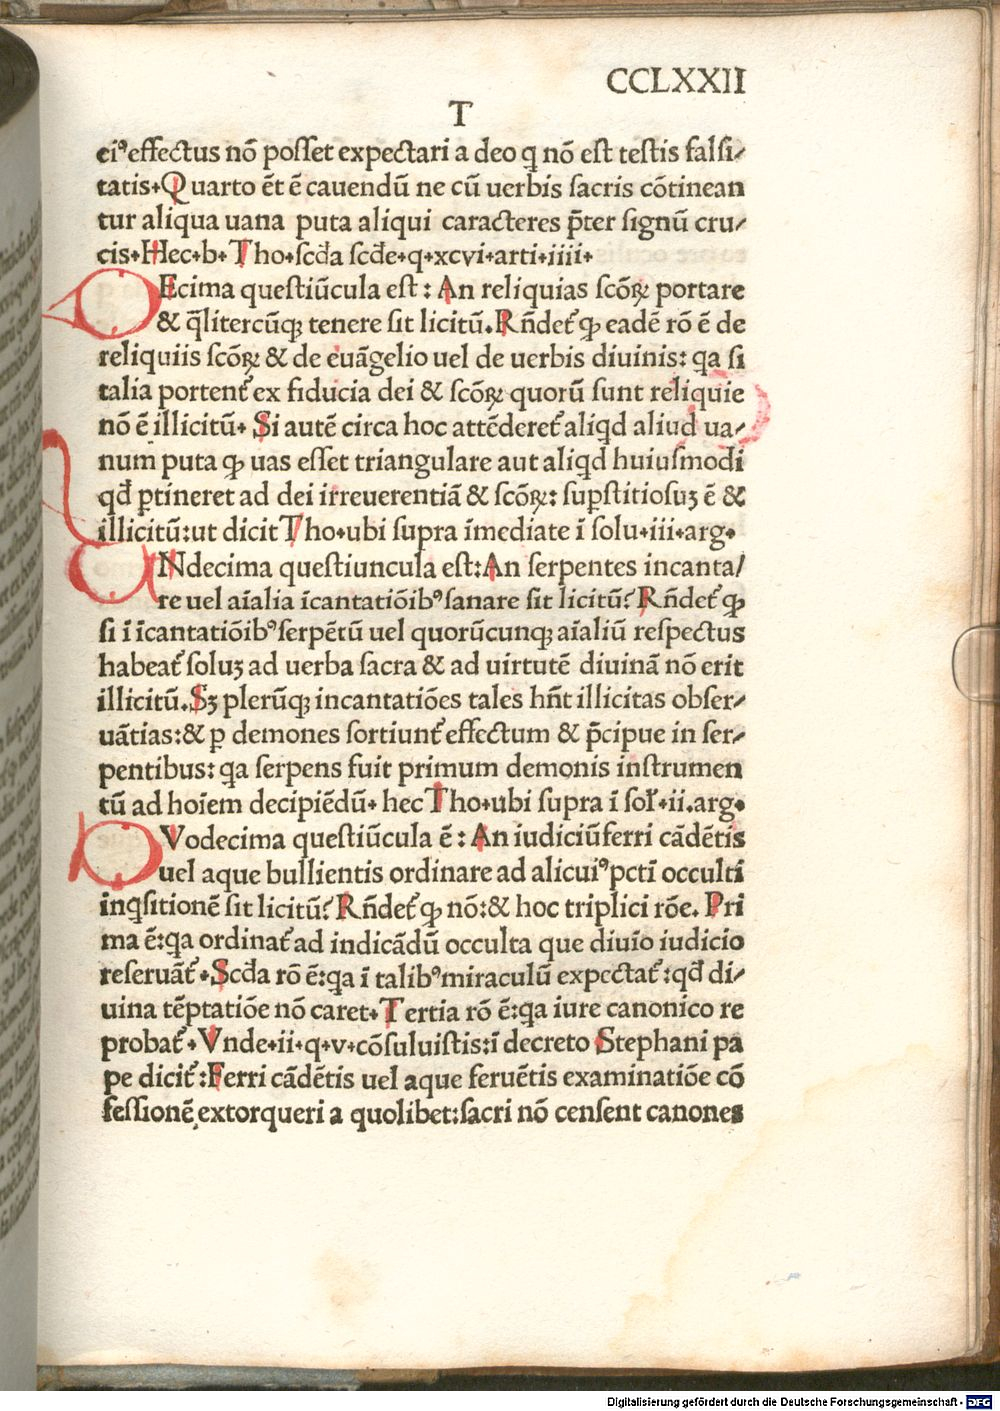 CCLXXII
T
eiꝰ effectus nō posset expectari a deo q̄ nō est testis falsi⸗
tatis. Quarto ēt ē cauendū ne cū uerbis sacris cōtinean
tur aliqua uana puta aliqui caracteres p̄ter signū cru⸗
cis. Hec.b.Tho.scd̄a scd̄e.q.xcvi.arti.iiii.
DEcima questiūcula est: An reliquias scōꝝ portare
& q̄litercūqꝫ tenere sit licitū. Rn̄det᷑ ꝙ eadē rō ē de
reliquiis scōꝝ & de euāgelio uel de uerbis diuinis: qa si
talia portent᷑ ex fiducia dei & scōꝝ quorū sunt reliquie
nō ē illicitū. Si autē circa hoc attēderet᷑ aliqd aliud ua⸗
num puta ꝙ uas esset triangulare aut aliqd huiusmodi
qd̄ ꝑtineret ad dei irreuerentiā & scōꝝ: suꝑstitiosuꝫ ē &
illicitū: ut dicit Tho.ubi supra īmediate ī solu.iii.arg.
UNdecima questiuncula est: An serpentes incanta/
re uel aīalia īcantatiōibꝰ sanare sit licitū? Rn̄det᷑ ꝙ
si ī īcantatiōibꝰ serpētū uel quorūcunqꝫ aīaliū respectus
habeat᷑ soluꝫ ad uerba sacra & ad uirtutē diuinā nō erit
illicitū. Sꝫ plerūqꝫ incantatiōes tales hn̄t illicitas obser⸗
uātias: & ꝑ demones sortiunt᷑ effectum & p̄cipue in ser⸗
pentibus: qa serpens fuit primum demonis instrumen
tū ad hoīem decipiēdū. hec Tho.ubi supra ī sol̄.ii.arg.
DVodecima questiūcula ē: An iudiciū ferri cādētis
uel aque bullientis ordinare ad alicuiꝰ pctī occulti
inqsitionē sit licitū? Rn̄det᷑ ꝙ nō: & hoc triplici rōe. Pri
ma ē: qa ordinat᷑ ad indicādū occulta que diuīo iudicio
reseruāt᷑. Scd̄a rō ē: qa ī talibꝰ miraculū expectat᷑: qd̄ di⸗
uina tēptatiōe nō caret. Tertia rō ē: qa iure canonico re
probat᷑. Vnde.ii.q.v.cōsuluistis: ī decreto Stephani pa
pe dicit᷑: Ferri cādētis uel aque feruētis examinatiōe cō
fessionē extorqueri a quolibet: sacri nō censent canones
Digitalisierung gefördert durch die Deutsche Forschungsgemeinschaft - DFG